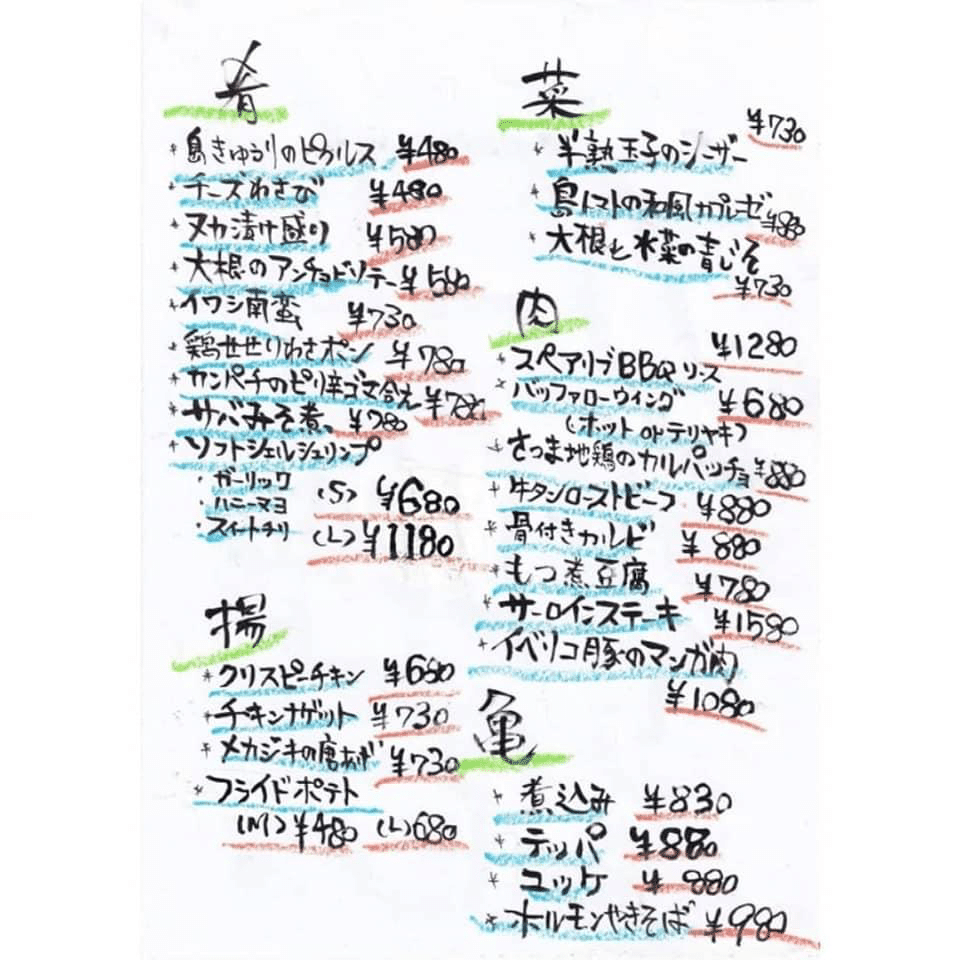 肴
*島きゅうりのピクルス ¥480
*チーズわさび ¥480
*ヌカ漬け盛り ¥580
*大根のアンチョビソテー ¥580
*イワシ南蛮 ¥730
*鶏せせりわさポン ¥780
*カンパチのピリ辛ゴマ合え ¥780
*サバみそ煮、 ¥780
*ソフトシェルシュリンプ
・ガーリック
・ハニーマヨ (S) ¥680
・スイートチリ (L) ¥1180
揚
*クリスピーチキン ¥680
*チキンナゲット ¥730
*メカジキの唐あげ ¥730
*フライドポテト
(M) ¥480 (L) 680
菜
*半熟玉子のシーザー ¥730
*島トマトの和風カプレーゼ ¥880
*大根と水菜の青じそ
¥730
肉
*スペアリブBBQソース ¥1280
*バッファローウィング ¥680
(ホット orテリヤキ)
*さつま地鶏のカルパッチョ ¥880
*牛タンローストビーフ ¥880
*骨付きカルビ ¥880
*もつ煮豆腐 ¥780
*サーロインステーキ ¥1580
*イベリコ豚のマンガ肉
¥1080
亀
*煮込み ¥830
*テッパ ¥880
*ユッケ ¥980
*ホルモンやきそば ¥980